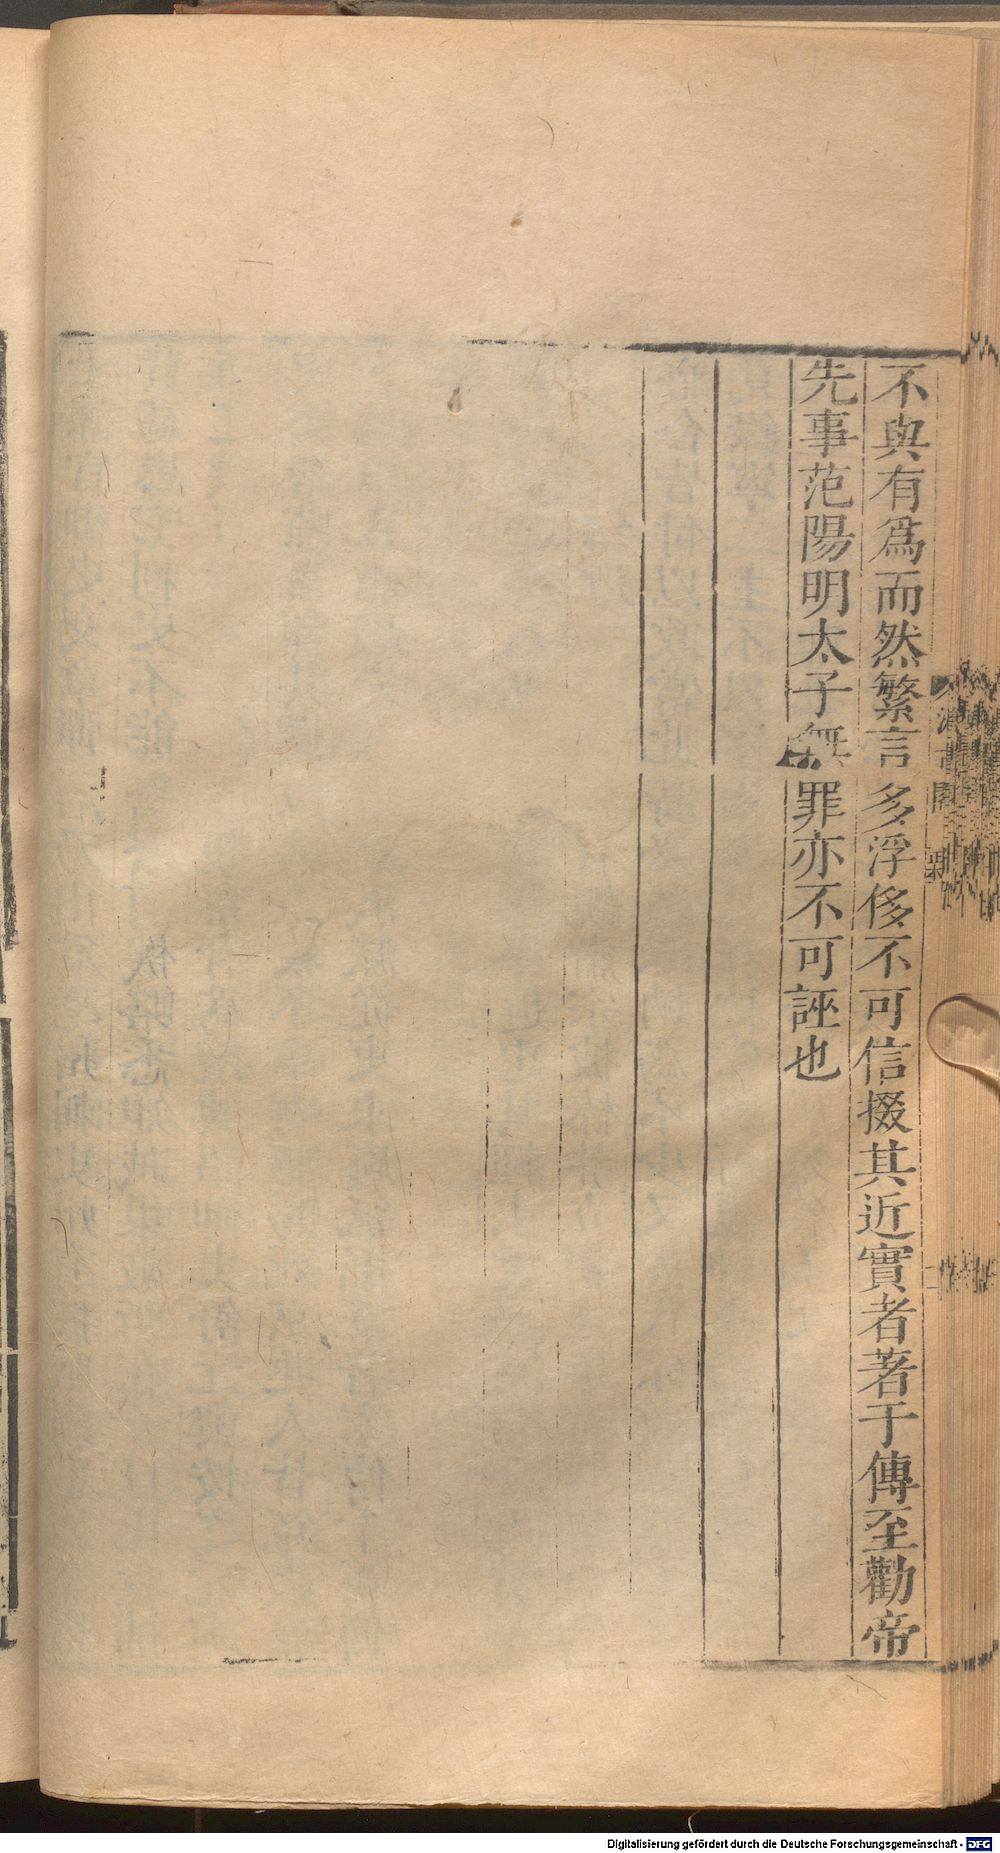 不與有爲而然繁言多浮侈不可信掇其近實者著于傳至勸帝
先事范陽明太子無罪亦不可誣也
Digitalisierung gefördert durch die Deutsche Forschungsgemeinschaft - DFG